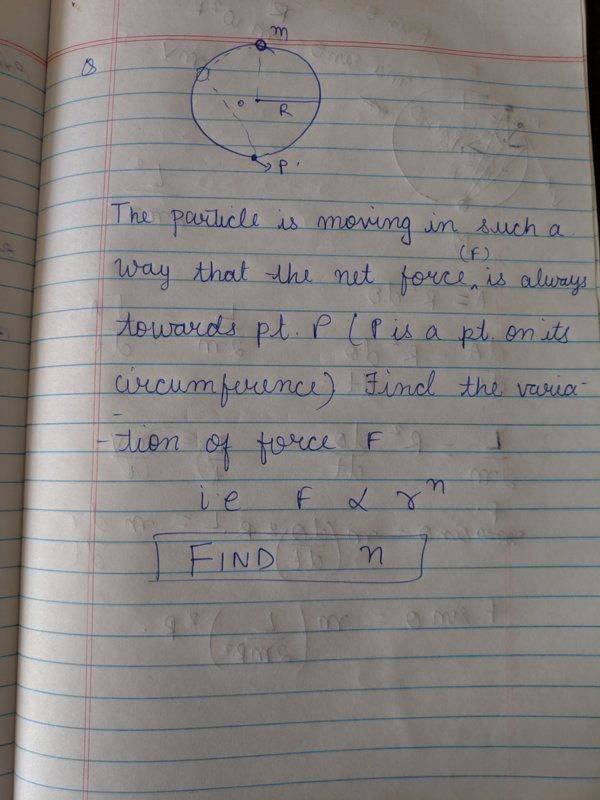 m
Q
O
R
P
The particle is moving in such a
(F)
way that the net force ^ is always
towards pt. P (P is a pt. on its
circumference) Find the varia-
-tion of force F
i e F ∝ r^n
FIND n